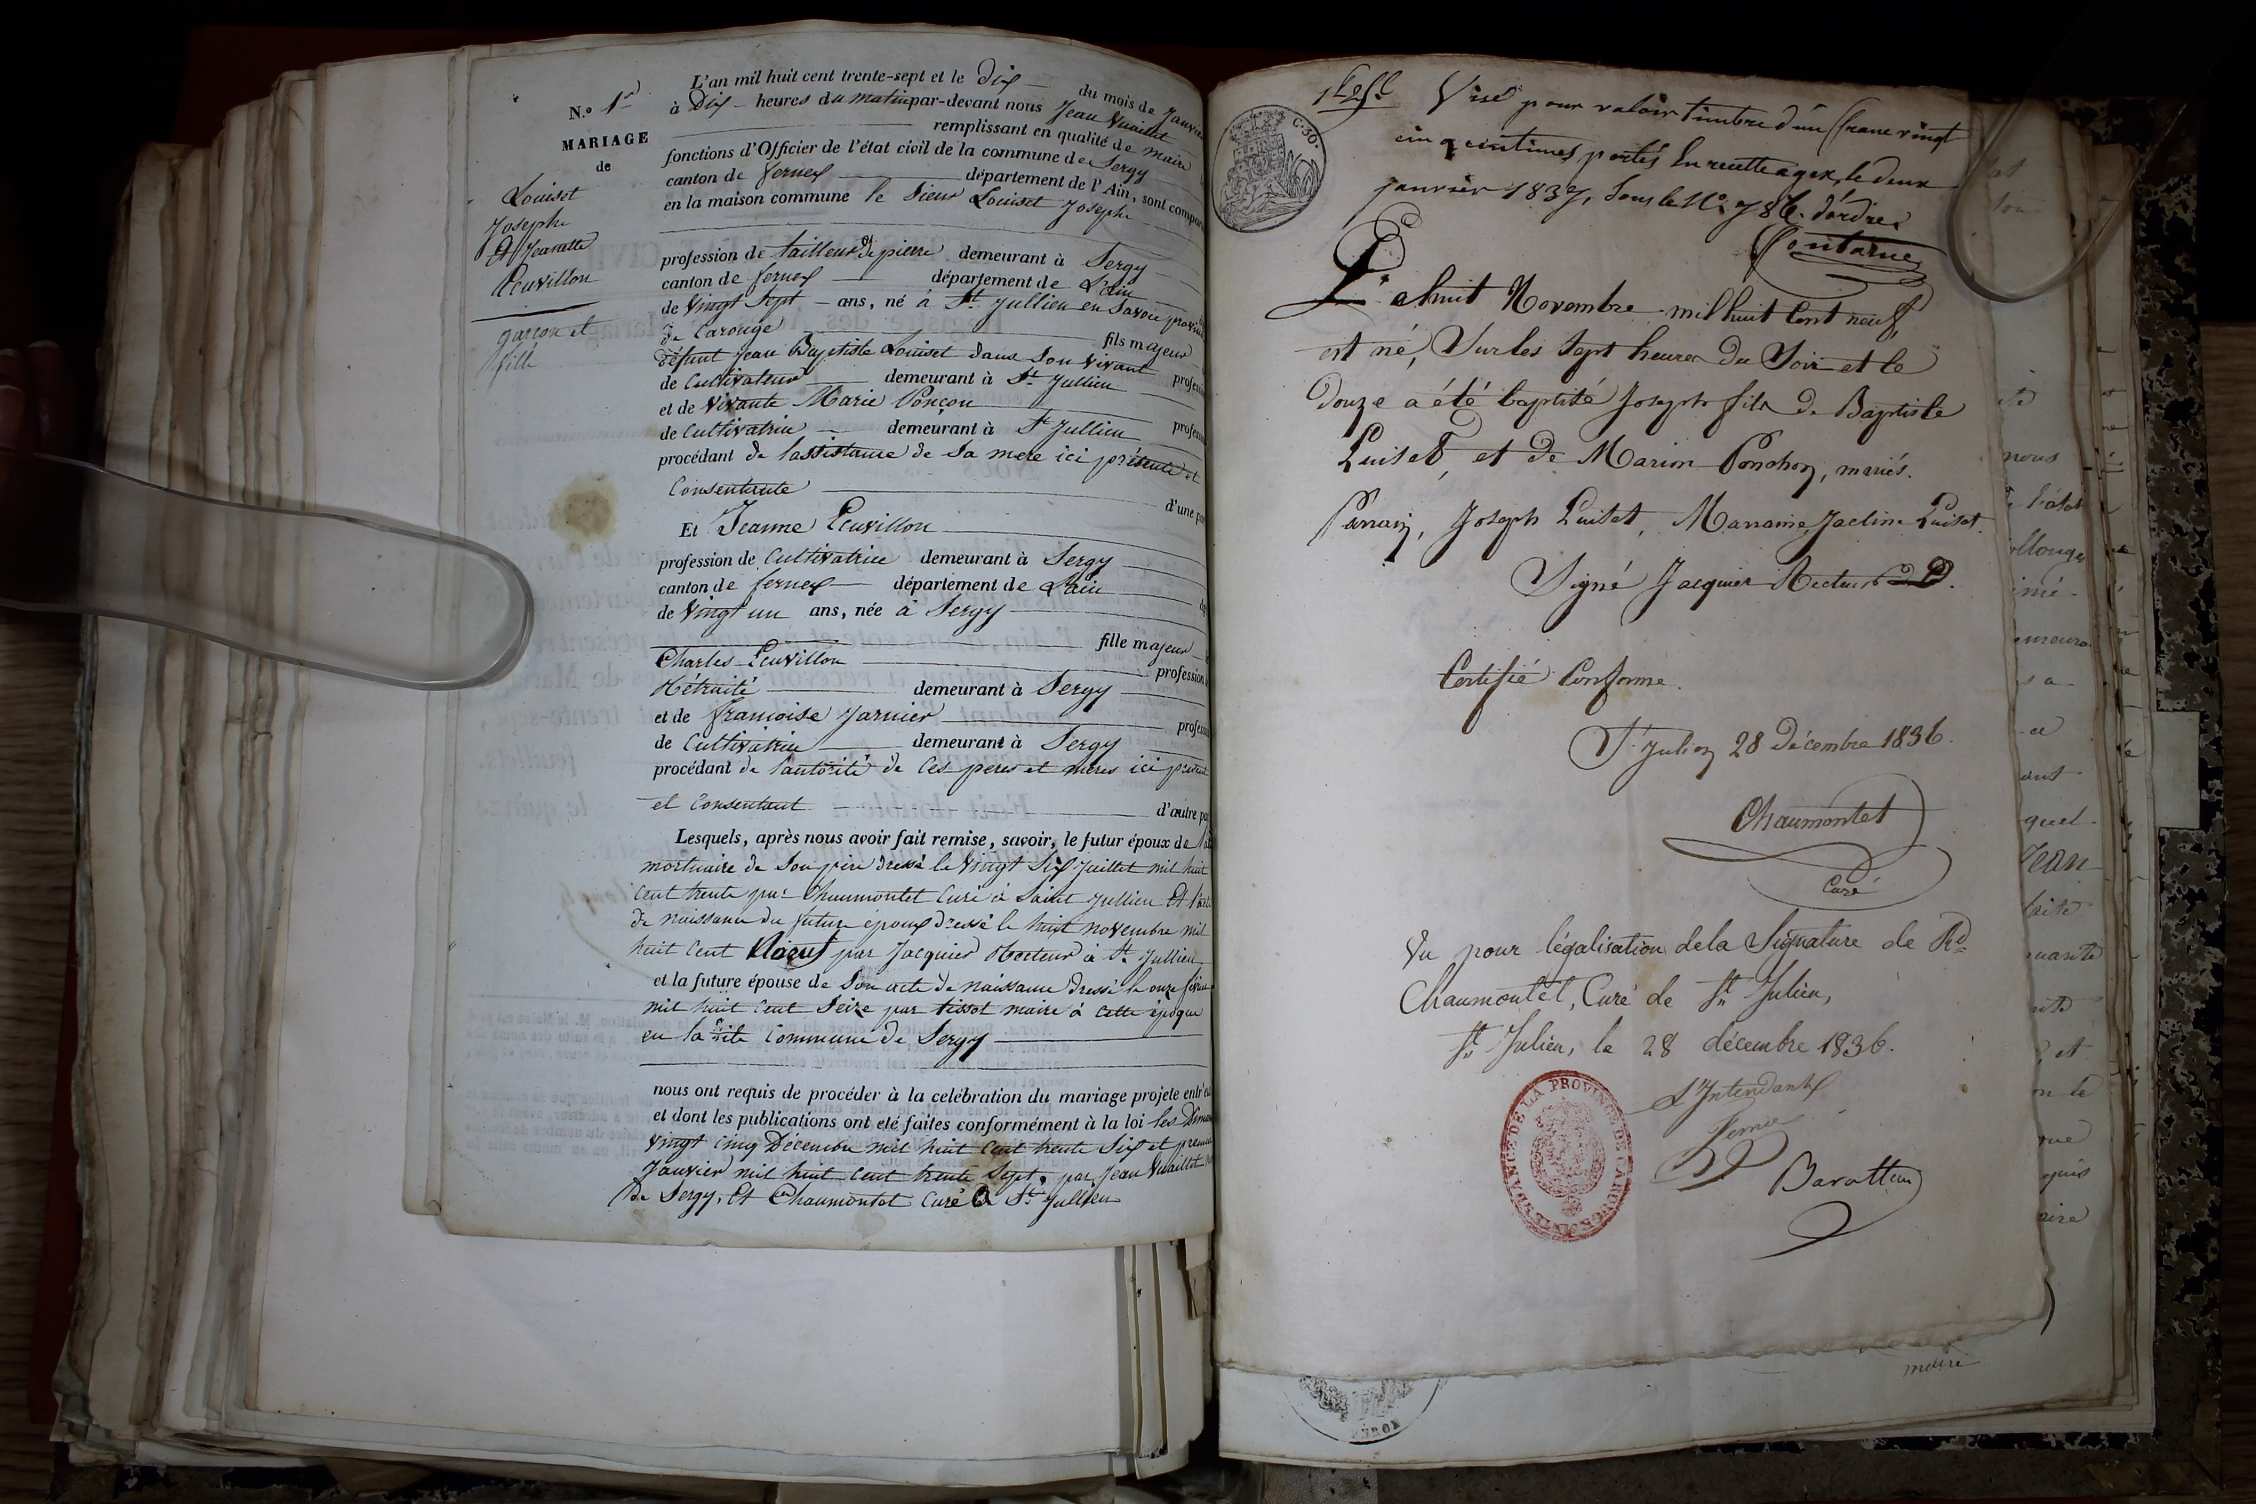 N.º 1er
MARIAGE
de
Louiset
Joseph
Et Jeanette
Leuvillon
garcon et
fille
L'an mil huit cent trente-sept et le Dix du mois de Janvier
à Dix heures du matin par-devant nous Jean Vuaillet
remplissant en qualité de maire
fonctions d'Officier de l'état civil de la commune de Sergy
canton de fernex département de l'Ain, sont compar
en la maison commune le Sieur Louiset Joseph
profession de tailleur de pierre demeurant à Sergy
canton de fernex département de L'ain
de Vingt Sept ans, né à St Jullien en Savoie provin
de Carouge fils majeur
défunt Jean Baptiste Louiset dans Son vivant profess
de Cultivateur demeurant à St Jullien
et de Vivante Marie Ponçon profess
de Cultivatrice demeurant à St Jullien
procédant de l'assistance de Sa mere ici présente et
Consentante d'une par
Et Jeanne Leuvillon
profession de Cultivatrice demeurant à Sergy
canton de fernex département de L'ain
de Vingt un ans, née à Sergy
fille majeur
Charles Leuvillon profession
Rétraité demeurant à Sergy
et de francoise Jarnier profess
de Cultivatrice demeurant à Sergy
procédant de l'autorité de Ces peres et meres ici présent
et Consentant d'autre pa
Lesquels, après nous avoir fait remise, savoir, le futur époux de
mortuaire de Son pere dressé le Vingt Six Juillet mil huit
Cent trente par Chaumontet Curé à Saint Jullien Et l'acte
de naissance du futur époux dressé le huit novembre mil
huit Cent Noeuf par Jacquier Recteur à St Jullien
et la future épouse de Son acte de naissance dressé le onze
mil huit Cent Seize par tissot maire à cette époque
en la dite Commune de Sergy
nous ont requis de procéder à la celébration du mariage projete entr'eu
et dont les publications ont eté faites conformément à la loi les Diman
Vingt Cinq Décembre mil huit Cent trente Six et premier
Janvier mil huit Cent trente Sept, par Jean Vuaillet
de Sergy, Et Chaumontet Curé à St Jullien
Visé pour valoir timbre d'un franc vingt
cinq centimes, portés En recette a gex, le deux
janvier 1837, Sous le No. 786 d'ordre
C. 30.
Le huit Novembre mil huit Cent neuf
est né, Sur les Sept heures du Soir et le
Douze a été baptisé Joseph fils de Baptiste
Luiset, et de Marion Ponchon, mariés.
Parrain, Joseph Luiset, Marraine Jacline Luiset.
Signé Jacquier Recteur
Certifié Conforme.
St Julien 28 Décembre 1836.
Chaumontet
Curé
Vu pour légalisation de la Signature de Rd
Chaumontet, Curé de St Julien,
St Julien, le 28 décembre 1836.
L'Intendant
INTENDANCE DE LA PROVINCE DE CAROUGE
nous
Jean
maire